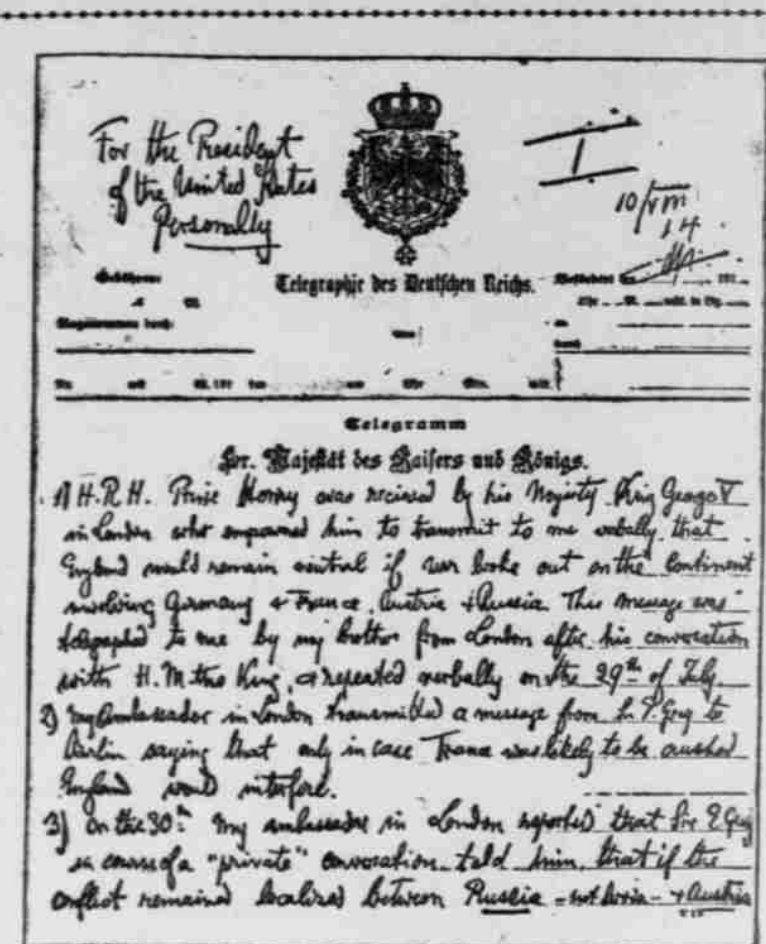 For the President
of the United States
Personally
I
10/VIII
14
Telegraphie des Deutschen Reichs.
Telegramm
Sr. Majestät des Kaisers und Königs.
1) H.R.H. Prince Henry was received by his Majesty King George V
in London who empowered him to transmit to me verbally, that
England would remain neutral if war broke out on the Continent
involving Germany + France, Austria + Russia. This message was
telegraphed to me by my brother from London after his conversation
with H.M. the King, + repeated verbally on the 29th of July.
2) My Ambassador in London transmitted a message from Sir E. Grey to
Berlin saying that only in case France was likely to be crushed
England would interfere.
3) On the 30th my ambassador in London reported that Sir E Grey
in course of a "private" conversation told him, that if the
conflict remained localized between Russia - not Serbia - + Austria